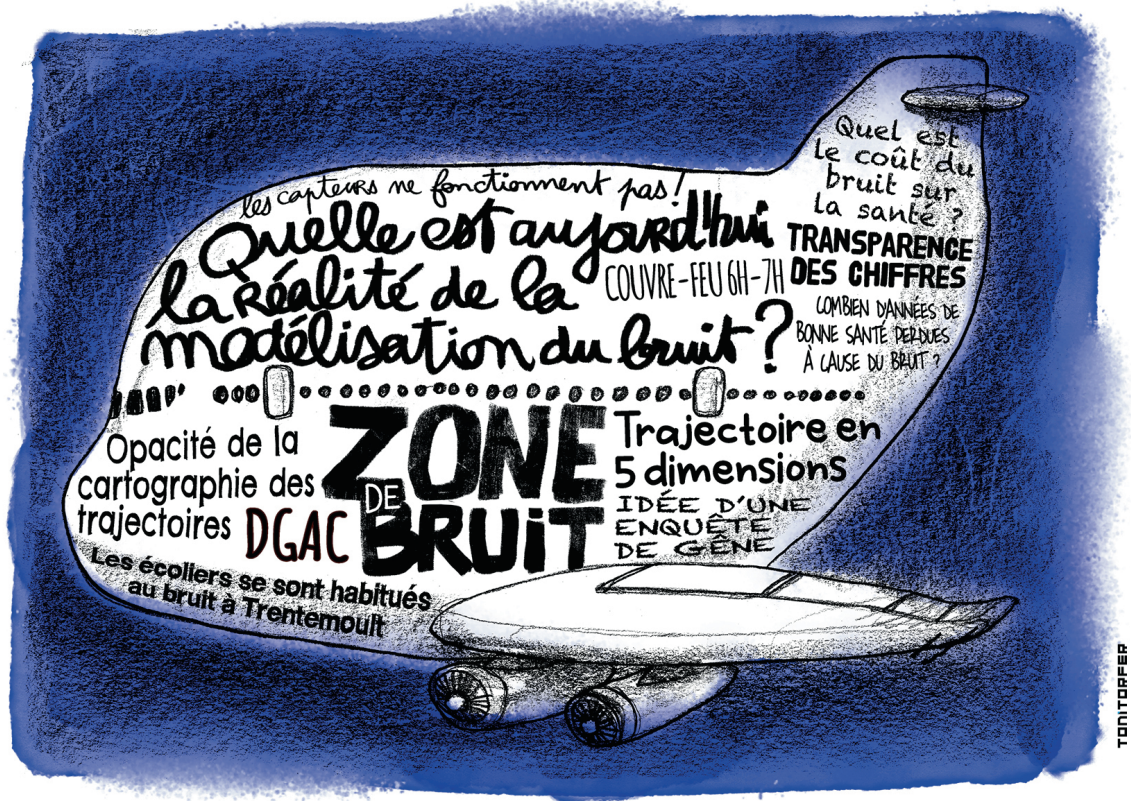 les capteurs ne fonctionnent pas !
Quelle est aujourd'hui
la réalité de la
modélisation du bruit ?
COUVRE-FEU 6H-7H
Quel est
le coût du
bruit sur
la santé ?
TRANSPARENCE
DES CHIFFRES
COMBIEN D'ANNÉES DE
BONNE SANTÉ PERDUES
À CAUSE DU BRUIT ?
Opacité de la
cartographie des
trajectoires
DGAC
ZONE
DE
BRUiT
Trajectoire en
5 dimensions
IDÉE D'UNE
ENQUÊTE
DE GÊNE
Les écoliers se sont habitués
au bruit à Trentemoult